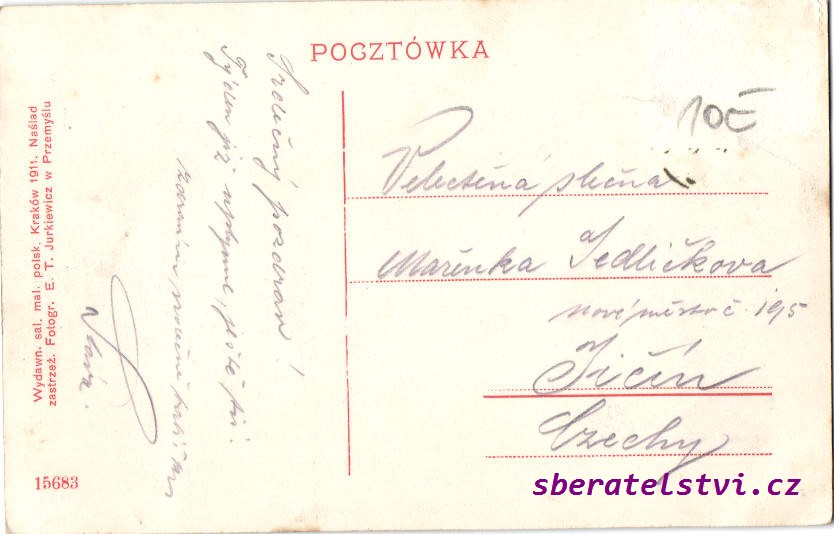 POCZTÓWKA
Wydawn. sal. mal. polsk. Kraków 1911. Naślad
zastrzeż. Fotogr. E. T. Jurkiewicz w Przemyślu
15683
Srdečný pozdrav!
Týden již uplynul, ještě tři.
10Č
Velectěná slečna
Mařenka Jedličkova
Nové město č 195
Jičín
Czechy
sberatelstvi.cz